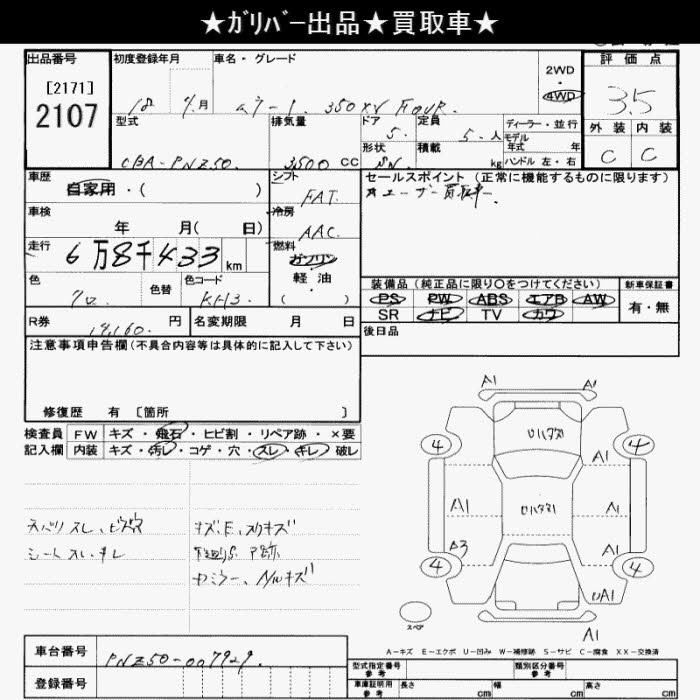 ★ｶﾞﾘﾊﾞｰ出品★買取車★
出品番号
[2171]
2107
初度登録年月
18 月
車名・グレード
350XV FOUR.
2WD
・
4WD
評価点
3.5
外装 内装
C C
型式
CBA-PNZ50.
排気量
3500 CC
ドア
5.
定員
5. 人
ディーラー・並行
モデル
年式 年
形状
積載
kg
ハンドル 左・右
車歴
自家用・( )
シフト
FAT.
車検
年 月( 日)
冷房
AAC.
走行
6万8千433 km
燃料
ガソリン
軽油
・
( )
色
クロ
色替
色コード
KH3.
セールスポイント (正常に機能するものに限ります)
ユーザー買取車.
装備品 (純正品に限り○をつけてください)
新車保証書
PS PW ABS エアB AW
SR ナビ TV カワ
有・無
R券
円
名変期限 月 日
後日品
注意事項申告欄(不具合内容等は具体的に記入して下さい)
修復歴 有 [箇所 ]
検査員 FW キズ・飛石・ヒビ割・リペア跡・×要
記入欄 内装 キズ・汚レ・コゲ・穴・スレ・キレ・破レ
A1 A1
4 4
A1 A1
A3 A1
4 4
A1
A1
スペア
A-キズ E-エクボ U-凹み W-補修跡 S-サビ C-腐食 XX-交換済
車台番号
PNZ50-007929.
登録番号
型式指定番号
参考
類別区分番号
参考
車庫証明用
参考
長さ cm
幅 cm
高さ cm